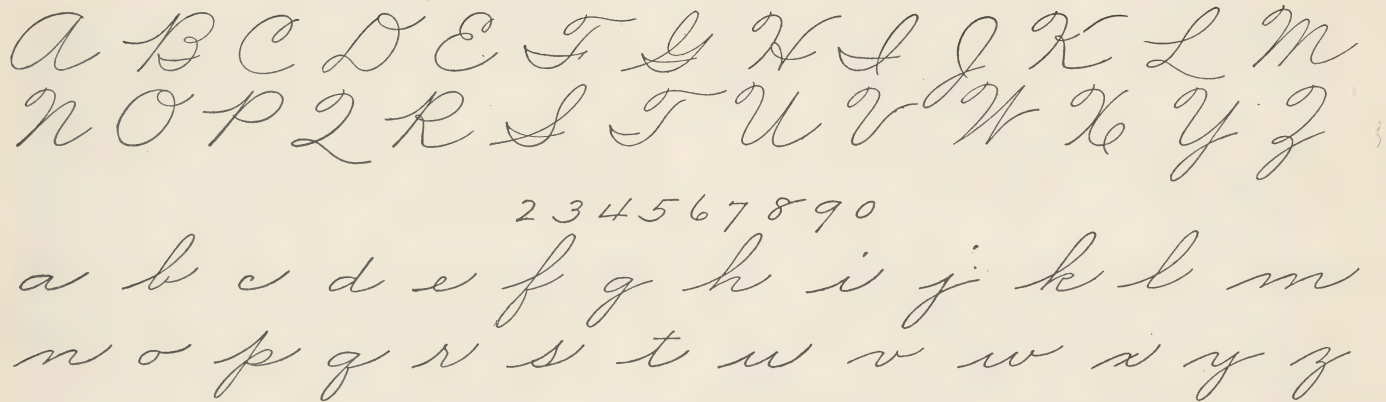 A B C D E F G H I J K L M
N O P Q R S T U V W X Y Z
2 3 4 5 6 7 8 9 0
a b c d e f g h i j k l m
n o p q r s t u v w x y z